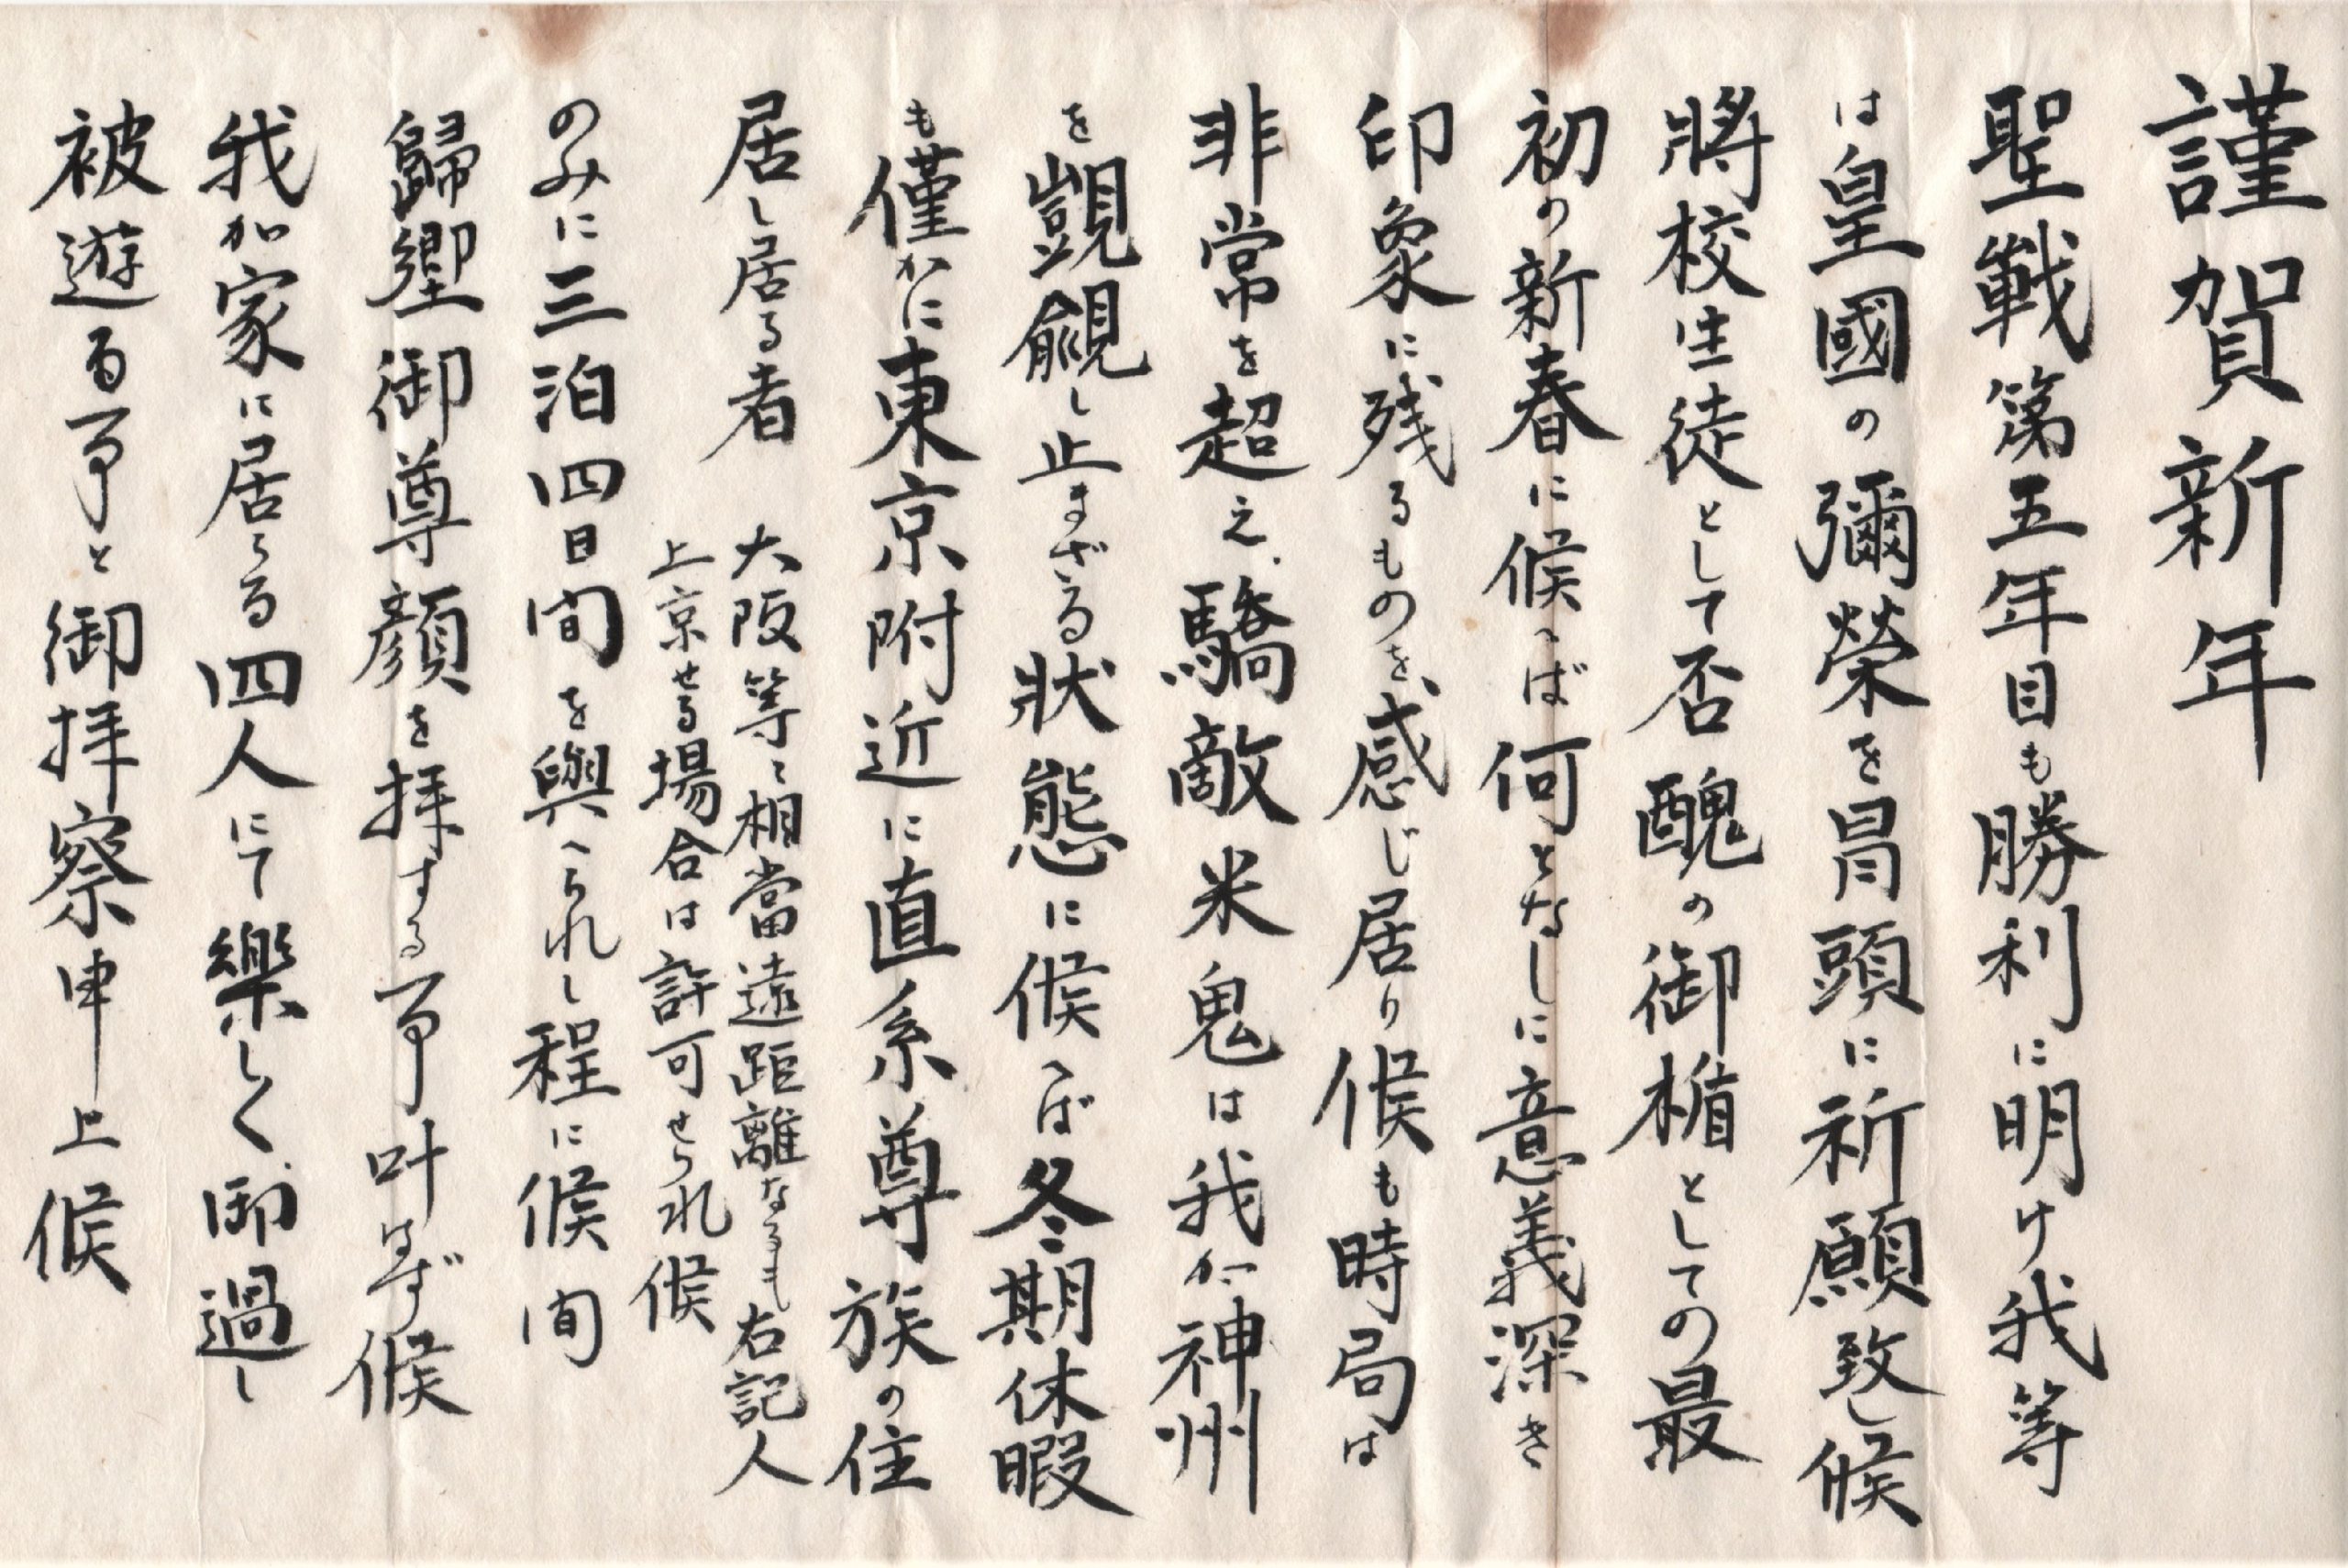 謹賀新年
聖戦第五年目も勝利に明け我等
は皇國の彌榮を冒頭に祈願致し候
將校生徒として否醜の御楯としての最
初の新春に候へば何となしに意義深き
印象に残るものを感じ居り候も時局は
非常を超え驕敵米鬼は我が神州
を覬覦し止まざる状態に候へば冬期休暇
も僅かに東京附近に直系尊族の住
居し居る者
大阪等々相當遠距離なるも右記人
上京せる場合は許可せられ候
のみに三泊四日間を與へられし程に候間
歸郷御尊顔を拝する事叶はず候
我か家に居らる四人にて樂しく御過し
被遊る事と御拝察申上候